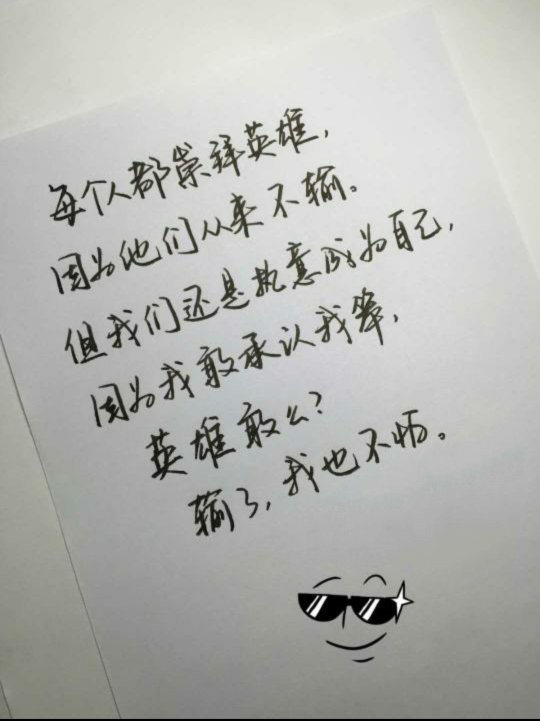 每个人都崇拜英雄,
因为他们从来不输。
但我们还是执意成为自己,
因为我敢承认我笨,
英雄敢么?
输了,我也不怕。